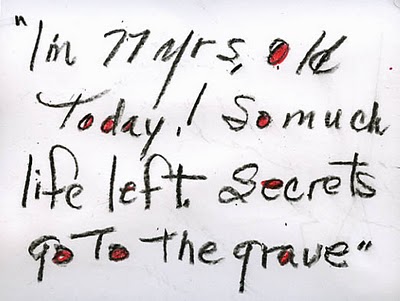 "I'm 77 yrs, old
Today! So much
life left. Secrets
go To the grave"